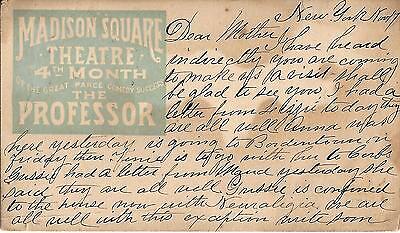 MADISON SQUARE
THEATRE
4TH MONTH
OF THE GREAT FARCE COMEDY SUCCESS
THE
PROFESSOR
New York Nov 7
Dear Mother I have heard
indirectly you are coming
to make us a visit shall
be glad to see you I had a
letter from Lizzie to day they
are all well Anna was
here yesterday is going to Bordentown on
Friday then Jennie is to go with her to
Gussie had a letter from Maud yesterday she
said they are all well Gussie is confined
to the house now with Neuralgia We are
all well with this exception write soon